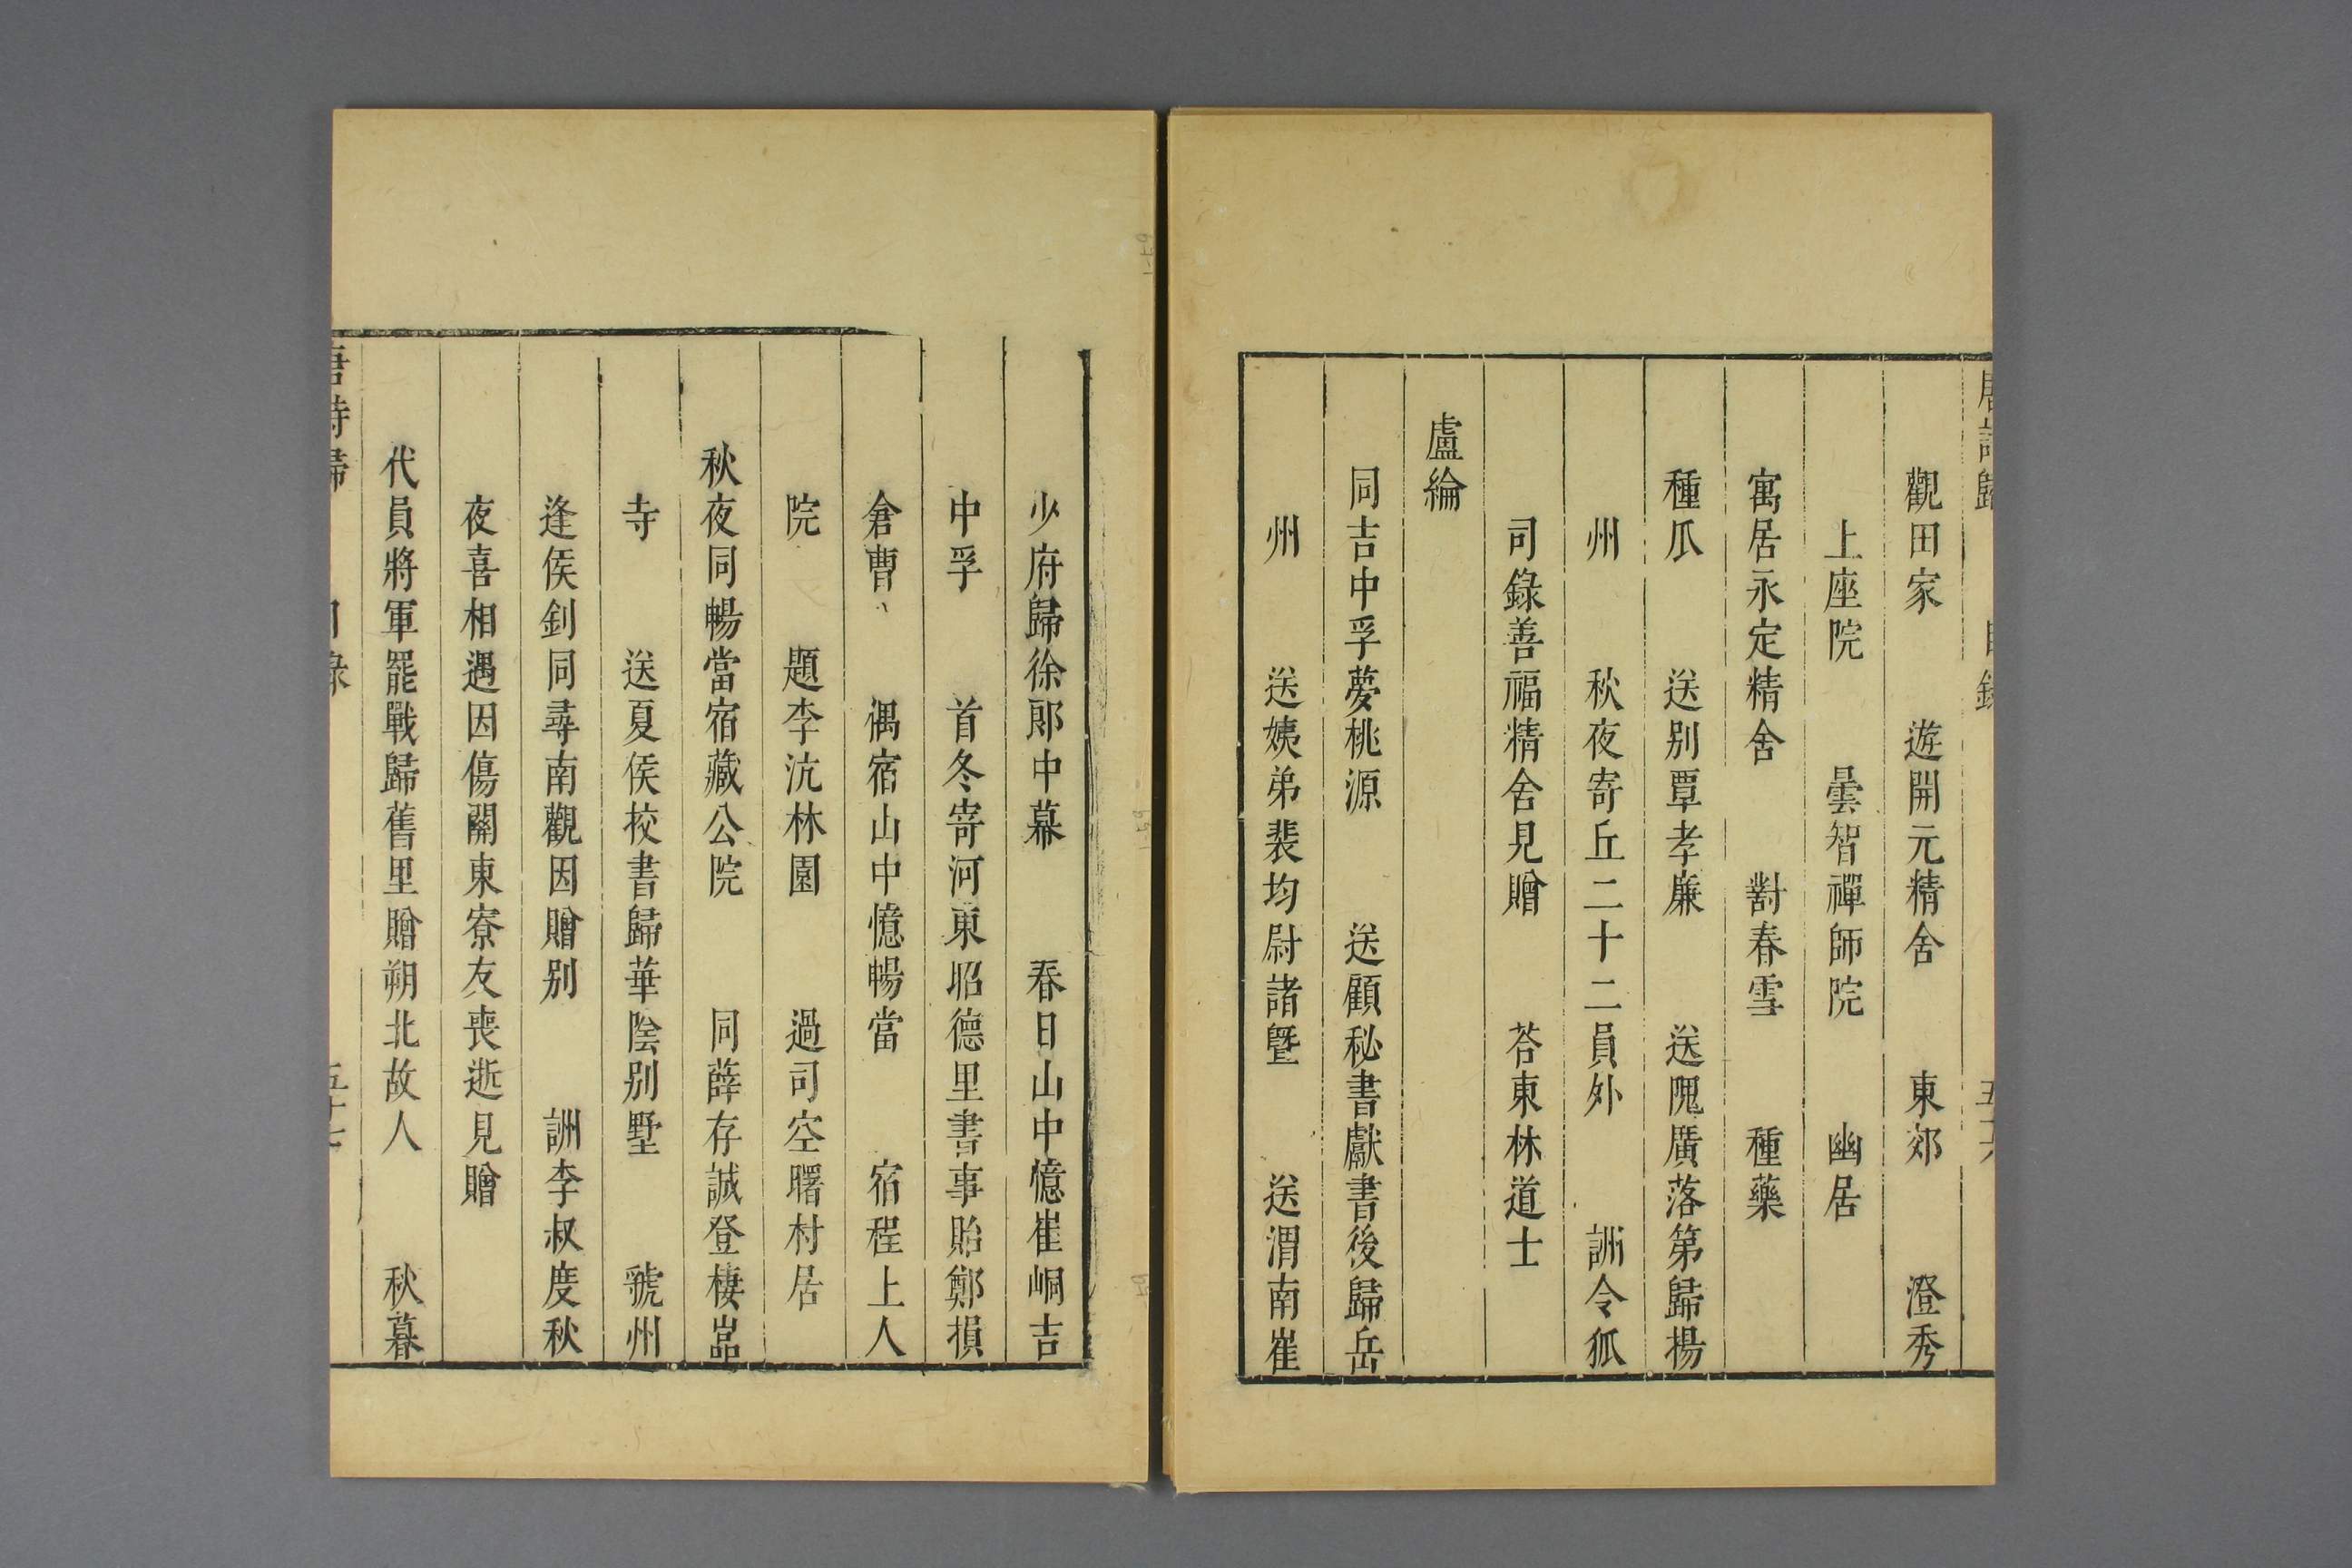 唐詩歸 目錄 五十六
觀田家 遊開元精舍 東郊 澄秀
上座院 曇智禪師院 幽居
寓居永定精舍 對春雪 種藥
種瓜 送別覃孝廉 送隗廣落第歸揚
州 秋夜寄丘二十二員外 詶令狐
司錄善福精舍見贈 荅東林道士
盧綸
同吉中孚夢桃源 送顧秘書獻書後歸岳
州 送姨弟裴均尉諸曁 送渭南崔
少府歸徐郎中幕 春日山中憶崔峒吉
中孚 首冬寄河東昭德里書事貽鄭損
倉曹 偶宿山中憶暢當 宿程上人
院 題李沆林園 過司空曙村居
秋夜同暢當宿藏公院 同薛存誠登棲嵓
寺 送夏侯校書歸華陰別墅 虢州
逢侯釗同尋南觀因贈別 詶李叔度秋
夜喜相遇因傷關東寮友喪逝見贈
代員將軍罷戰歸舊里贈朔北故人 秋暮
唐詩歸 目錄 五十七